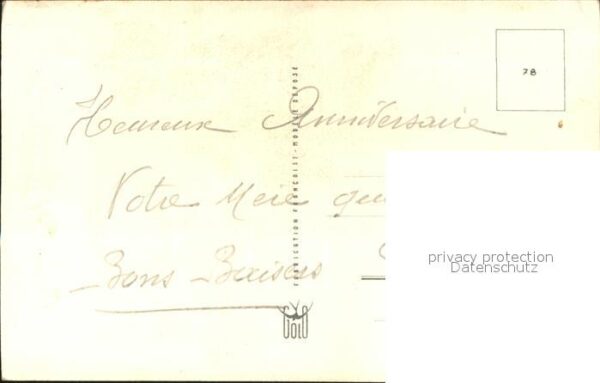 78
Heureux Anniversaire
Votre Mere qui
Bons Baisers
FABRICATION FRANÇAISE - MODÈLE DÉPOSÉ
GOLO
privacy protection
Datenschutz